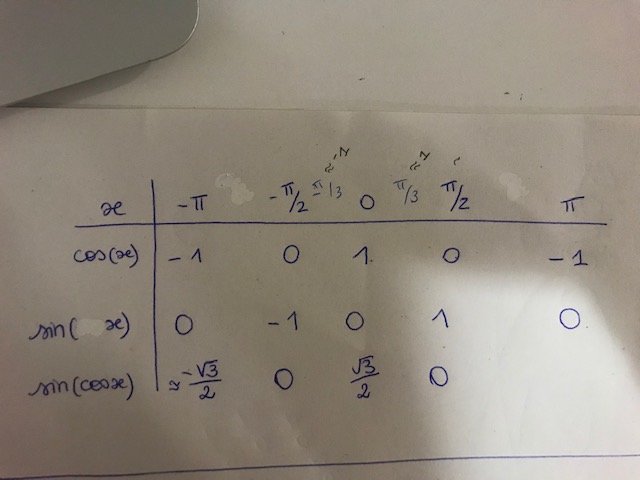 ≈ -1 ≈ 1 ~
x -π -π/2 -π/3 0 π/3 π/2 π
cos(x) -1 0 1 0 -1
sin( x) 0 -1 0 1 0
sin(cosx) ≈ -√3/2 0 √3/2 0